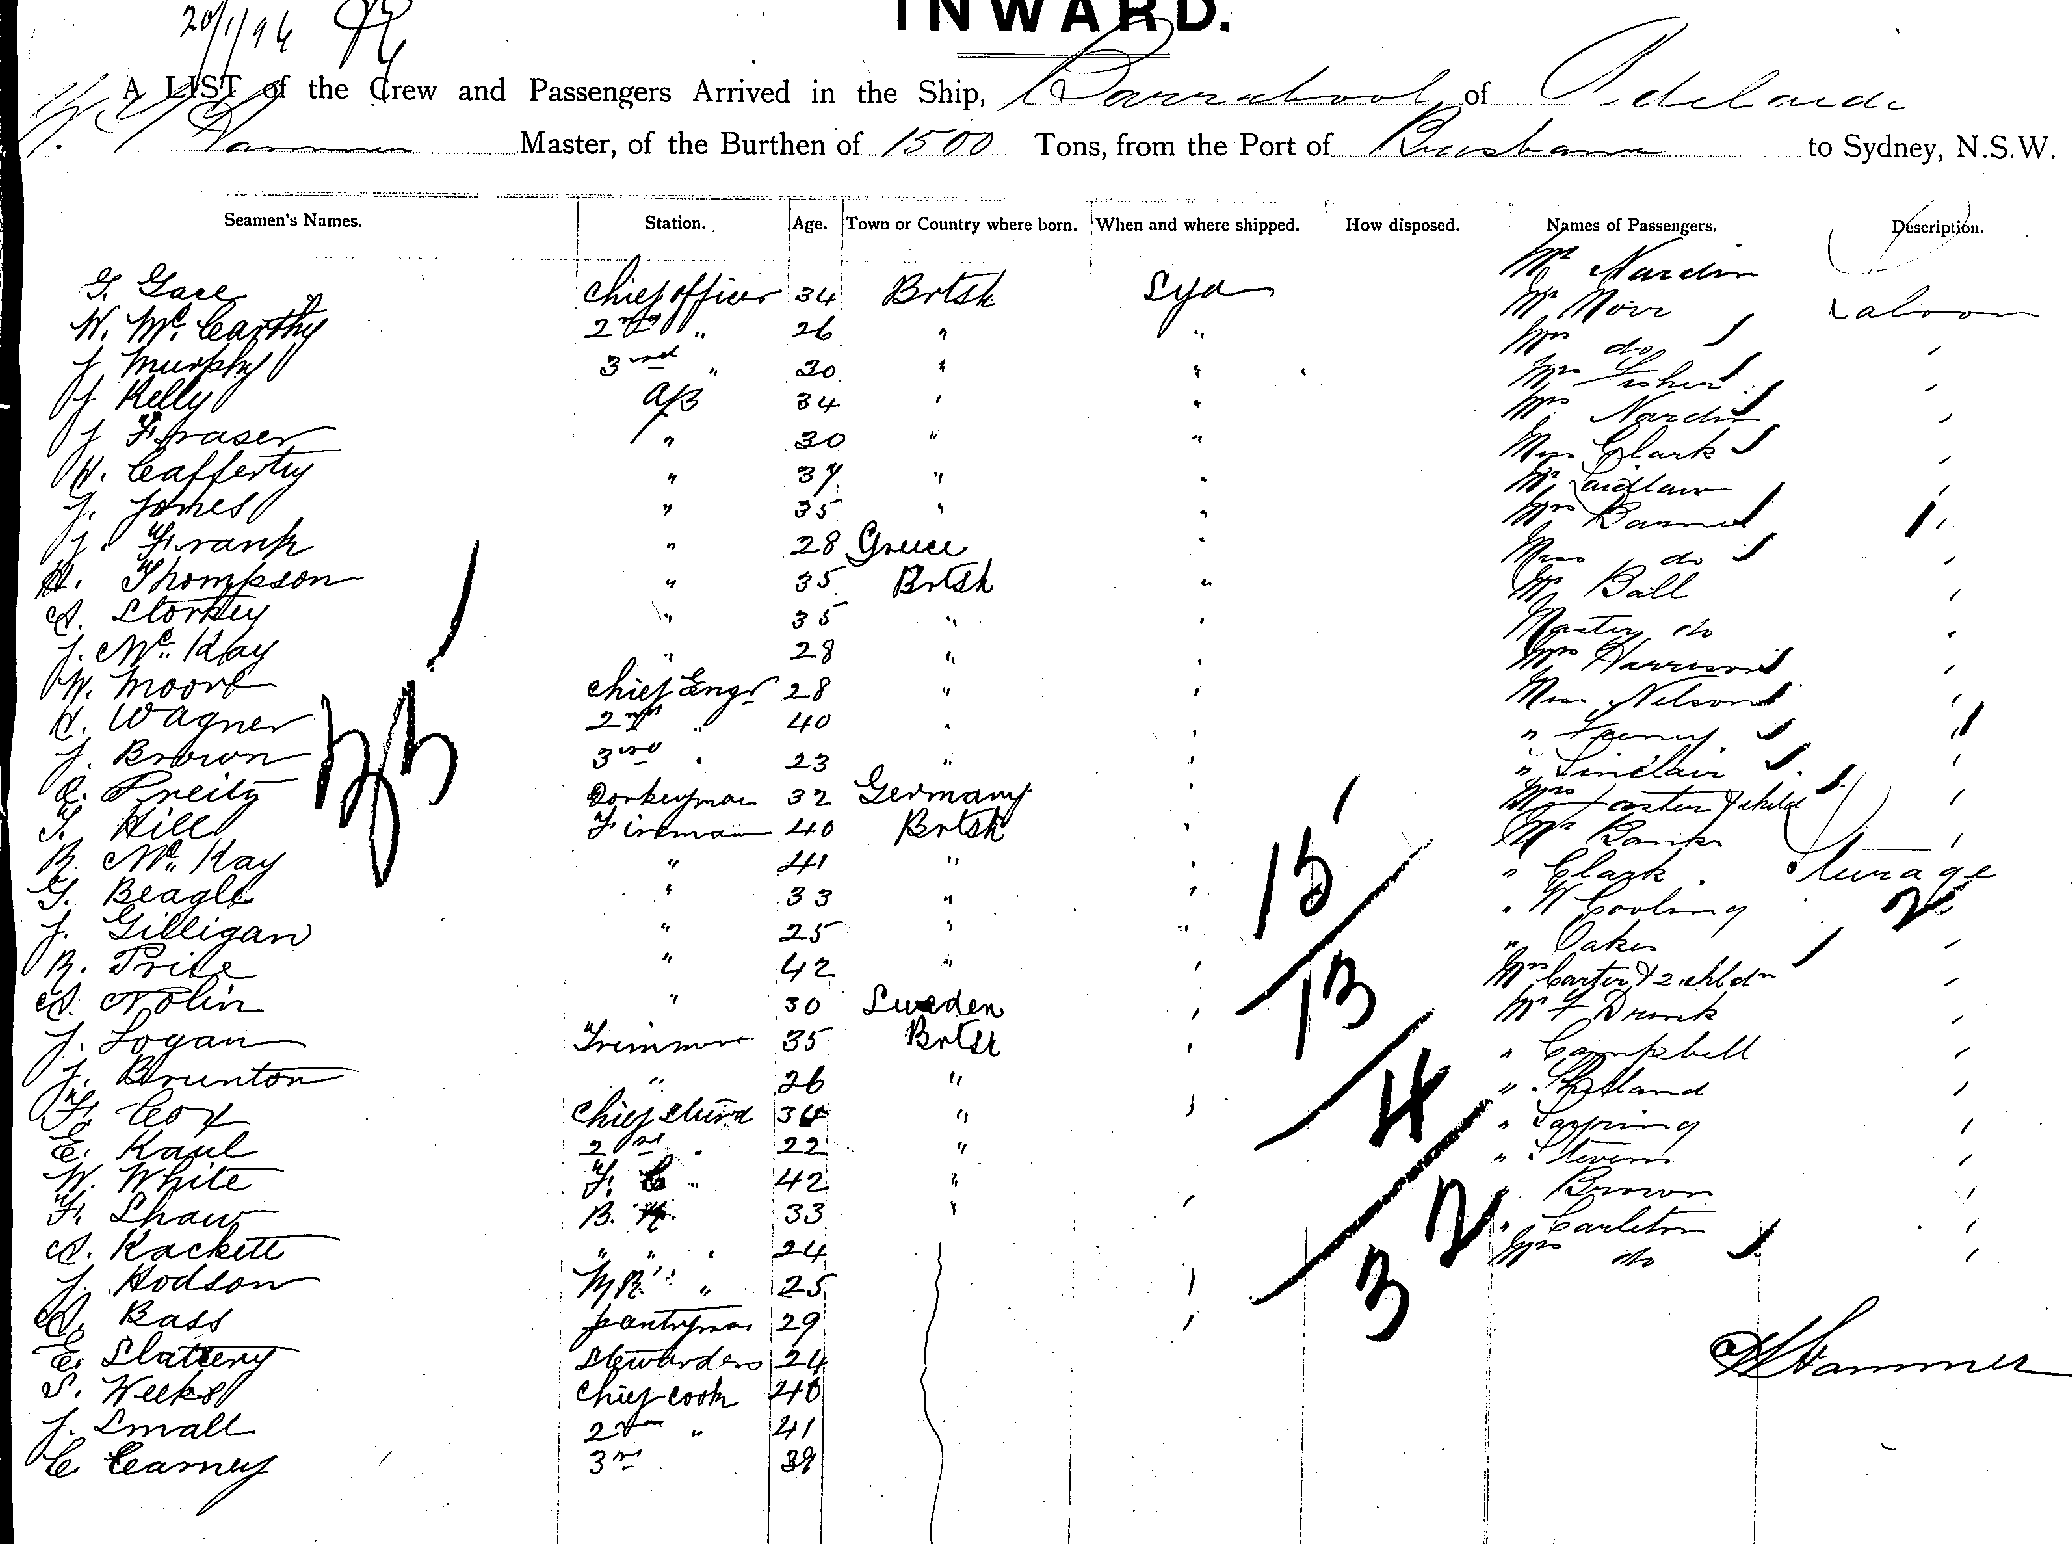 INWARD.
20/1/96
A LIST of the Crew and Passengers Arrived in the Ship, Barrabool of Adelaide
Master, of the Burthen of 1500 Tons, from the Port of Brisbane to Sydney, N.S.W.
Seamen's Names. Station. Age. Town or Country where born. When and where shipped. How disposed. Names of Passengers. Description.
G. Gace Chief officer 34 Brtsh Syd Mr Nardin
W. McCarthy 2nd " 26 " " Mr Moir Saloon
J Murphy 3rd " 30 " " Mrs do
J Kelly A/B 34 " " Mrs Fisher
J Fraser " 30 " " Mrs Nardin
H. Cafferty " 37 " " Miss Clark
J. Jones " 35 " " Mr Laidlaw
J. Frank " 28 Greece " Mrs
H. Thompson " 35 Brtsh " Miss do
A. Storkey " 35 " " Mr Ball
J. McKay " 28 " " Master do
W. Moore Chief Engr 28 " " Mrs Harrison
C. Wagner 2nd " 40 " " Miss Nelson
J. Brown 3rd " 23 " "
Preitz Donkeyman 32 Germany " " Sinclair
T. Hill Fireman 40 Brtsh " Mrs & child
R. McKay " 41 " " Mr Banks
G. Beagle " 33 " " " Clark Steerage
J. Gilligan " 25 " " " W Cooling
R. Price " 42 " " " Oakes
A. Nolin " 30 Sweden " Mrs Carter & 2 chldn
J. Logan Trimmer 35 Brtsh " Mr F Drunk
J. Brunton " 26 " " Campbell
F. Cox Chief Stewd 34 " "
E. Kaul 2nd " 22 "
W. White F. C " 42 " " Stevens
F. Shaw B. 33 " " " Brown
A. Rackett " " " 24 " Carleton
J. Hodson M.R. " 25 " Mrs do
A. Bass pantryman 29 "
E. Slattery Stewardess 24
S. Weeks Chief cook 40
J. Small 2nd " 41
C Cearney 3rd 39
15
13
4
32
3
2
Hammer